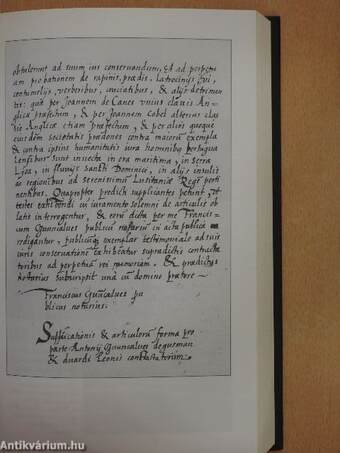 obtulerunt ad suum ius conservandum, & ad perpetu
am probationem de rapinis, prædis, latrocinijs, vi,
contumelijs, verberibus, cruciatibus, & alijs detrimen
tis: quæ per Joannem de Canes unius classis An
glicæ præfectum, & per Joannem Cobel alterius clas
sis Anglicæ etiam præfectum, & per alios quosque
eiusdem societatis prædones contra maiorum exempla
& contra ipsius humanitatis iura hominibus portuga
lensibus sunt in ora maritima, in serra
Lioa, in fluvijs Sancti Dominici, in alijs insulis
& regionibus ad serenissimum Lusitaniæ Regem perti
nentibus. Quapropter predicti supplicantes petunt, ut
testes iuramento solemni de articulis ob
latis interrogentur, & eorum dicta per me Francis
cum Gunsalvues publicum notarium in acta publica
redigantur, publicumque exemplar testimoniale ad sui
iuris conservationem exhibeatur supradictis contracta
toribus ad perpetuam rei memoriam. & prædictus
notarius subscripsit una cum domino prætore
Franciscus Gunçalues pu
blicus notarius.
Supplicationis & articulorum forma pro
parte Antonij Guncalues de gusman
& duardi Leonis contractatorum
Antikvárium.hu